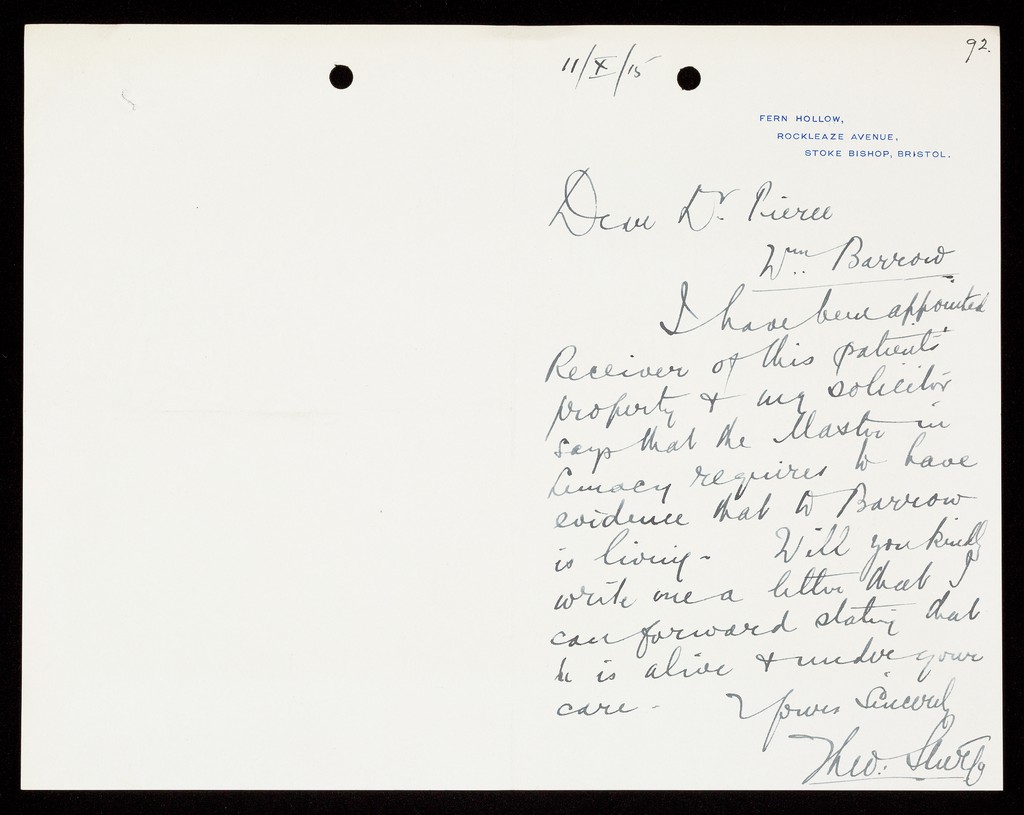 92.
11/X/15
FERN HOLLOW,
ROCKLEAZE AVENUE,
STOKE BISHOP, BRISTOL.
Dear Dr. Pierce
Wm. Barrow.
I have been appointed
Receiver of this patients'
property & my solicitor
says that the Master in
Lunacy requires to have
evidence that W Barrow
is living - Will you kindly
write me a letter that I
can forward stating that
he is alive & under your
care - Yours Sincerely
Theo.